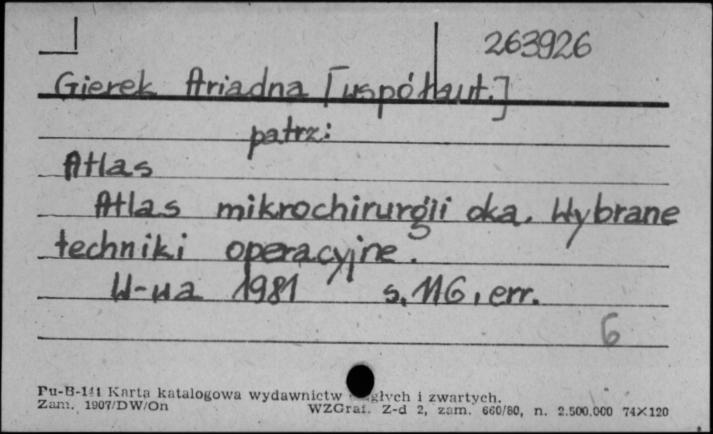 263926
Gierek Ariadna [współaut.]
patrz:
Atlas
Atlas mikrochirurgii oka. Wybrane
techniki operacyjne.
W-wa 1981 s. 116, err.
6
Pu-B-141 Karta katalogowa wydawnictw głych i zwartych.
Zam. 1907/DW/On WZGraf. Z-d 2, zam. 660/80, n. 2.500.000 74×120